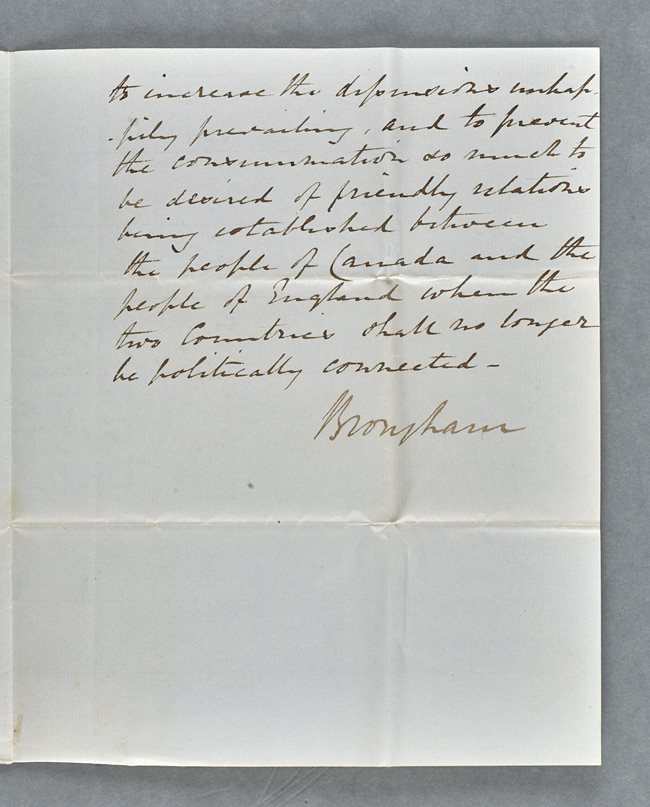 to increase the dissensions unhap-
-pily prevailing, and to prevent
the consummation so much to
be desired of friendly relations
being established between
the people of Canada and the
people of England when the
two Countries shall no longer
be politically connected -
Brougham